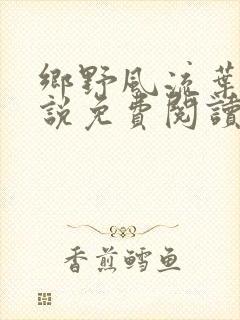 鄉野風流葉
說免費閱讀
香煎鳕鱼